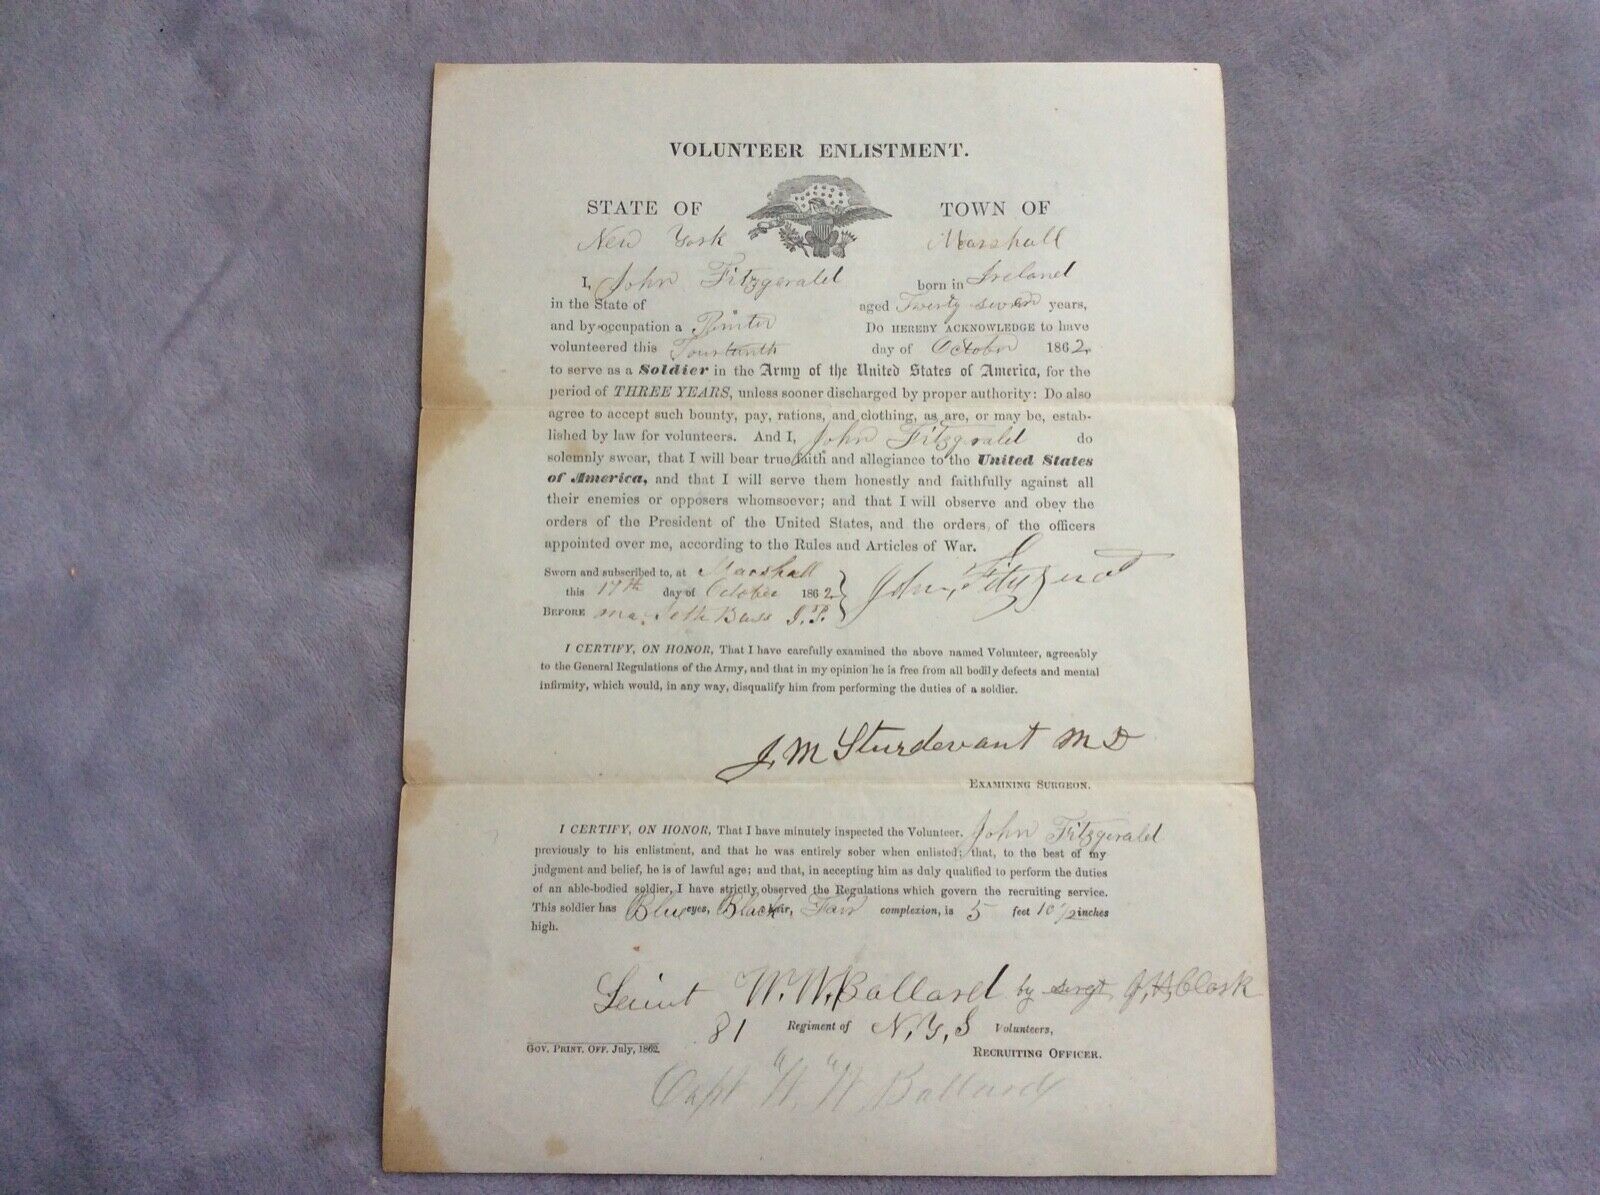 VOLUNTEER ENLISTMENT.
STATE OF TOWN OF
New York Marshall
I, John Fitzgerald born in Ireland
in the State of aged Twenty seven years,
and by occupation a Do HEREBY ACKNOWLEDGE to have
volunteered this Fourteenth day of October 1862
to serve as a Soldier in the Army of the United States of America, for the
period of THREE YEARS, unless sooner discharged by proper authority: Do also
agree to accept such bounty, pay, rations, and clothing, as are, or may be, estab-
lished by law for volunteers. And I, John Fitzgerald do
solemnly swear, that I will bear true faith and allegiance to the United States
of America, and that I will serve them honestly and faithfully against all
their enemies or opposers whomsoever; and that I will observe and obey the
orders of the President of the United States, and the orders of the officers
appointed over me, according to the Rules and Articles of War.
Sworn and subscribed to, at Marshall
this 17th day of October 1862 John Fitzgerald
BEFORE me Seth Bass J.P.
I CERTIFY, ON HONOR, That I have carefully examined the above named Volunteer, agreeably
to the General Regulations of the Army, and that in my opinion he is free from all bodily defects and mental
infirmity, which would, in any way, disqualify him from performing the duties of a soldier.
J. M Sturdevant M D
EXAMINING SURGEON.
I CERTIFY, ON HONOR, That I have minutely inspected the Volunteer. John Fitzgerald
previously to his enlistment, and that he was entirely sober when enlisted; that, to the best of my
judgment and belief, he is of lawful age; and that, in accepting him as duly qualified to perform the duties
of an able-bodied soldier, I have strictly observed the Regulations which govern the recruiting service.
This soldier has Blue eyes, Black hair, Fair complexion, is 5 feet 10 1/2 inches
high.
Leiut W. W. Ballard by sergt J. H. Clark
81 Regiment of N, Y, S Volunteers,
GOV. PRINT. OFF. July, 1862. RECRUITING OFFICER.
Capt "W. W Ballard